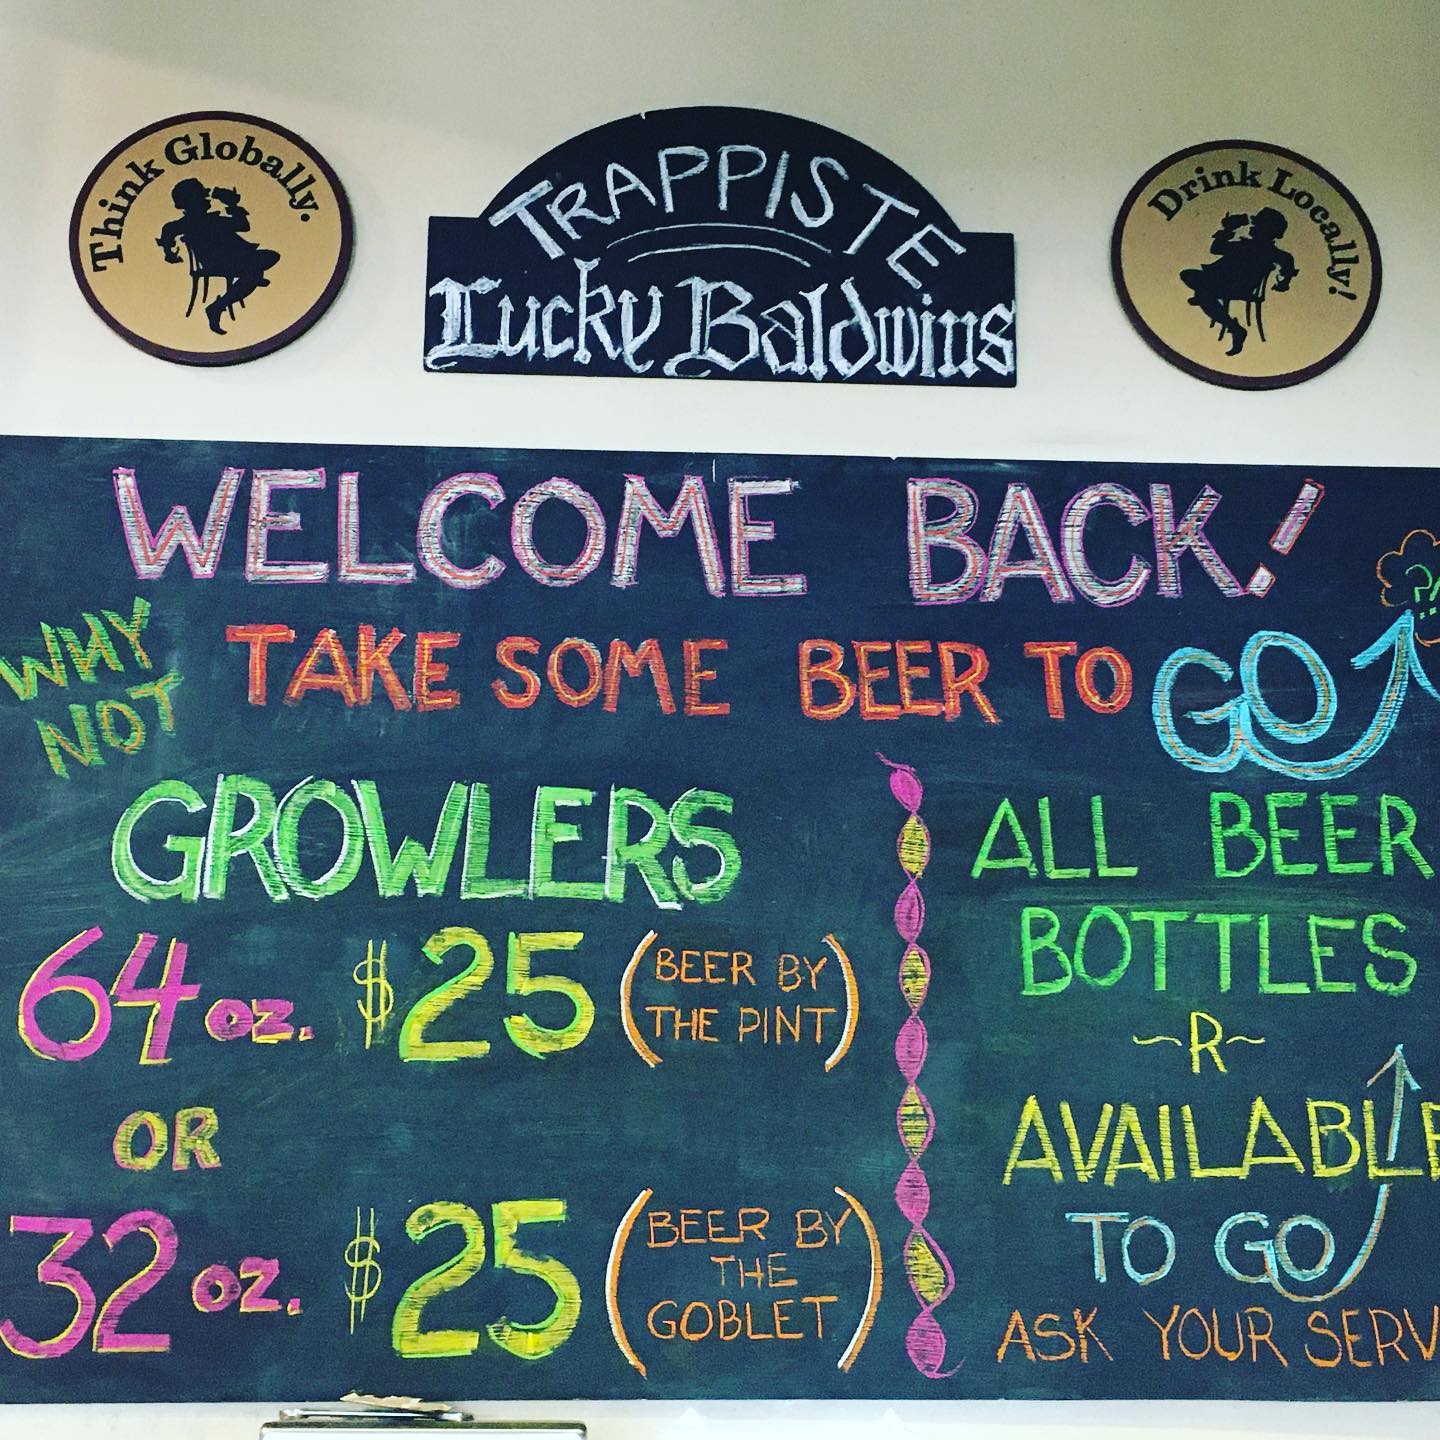 Think Globally.
TRAPPISTE
Lucky Baldwins
Drink Locally!
WELCOME BACK!
WHY
NOT
TAKE SOME BEER TO GO
??
GROWLERS
64 oz. $25 (BEER BY
THE PINT)
OR
32 oz. $25 (BEER BY
THE
GOBLET)
ALL BEER
BOTTLES
~R~
AVAILABLE
TO GO
ASK YOUR SERV